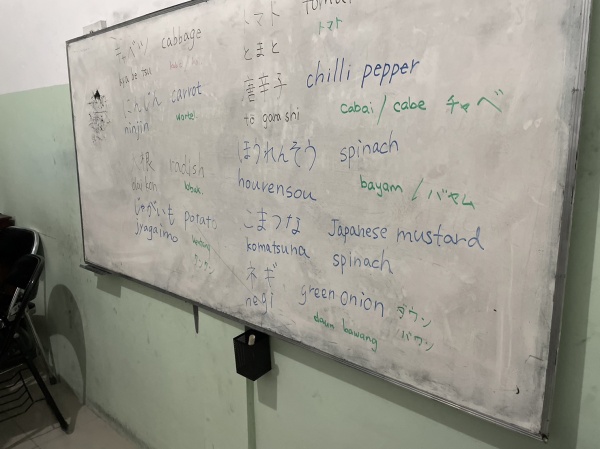 キャベツ cabbage
kya be tsu
にんじん carrot
ninjin wortel
根 radish
daikon lobak
じゃがいも potato
jyagaimo kentang
トマト
トマト
とまと
唐辛子 chilli pepper
to garashi cabai / cabe チャベ
ほうれんそう spinach
hourensou bayam / バヤム
こまつな Japanese mustard
komatsuna spinach
ネギ green onion ダウン
negi daun bawang バワン